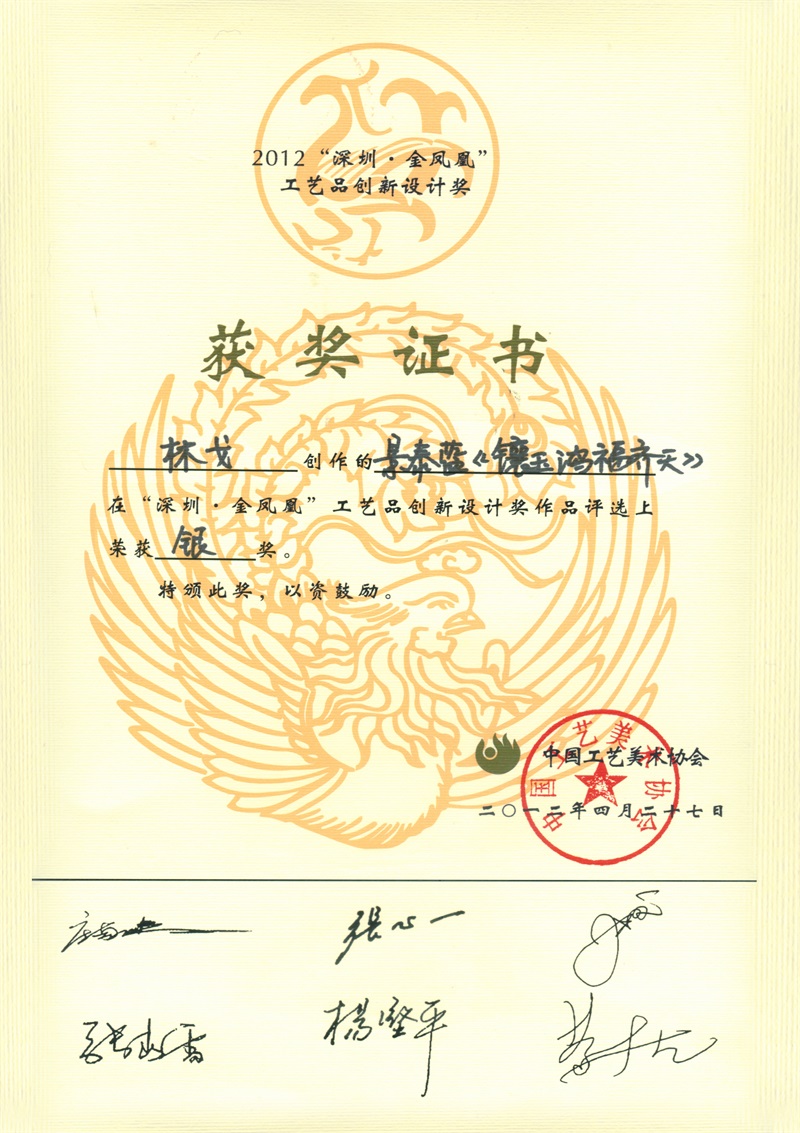 2012“深圳·金凤凰”
工艺品创新设计奖
获奖证书
林戈创作的景泰蓝《镶玉鸿福齐天》
在“深圳·金凤凰”工艺品创新设计奖作品评选上
荣获银奖。
特颁此奖，以资鼓励。
中国工艺美术协会
中国工艺美术协会
二〇一二年四月二十七日
張心一
楊堅平